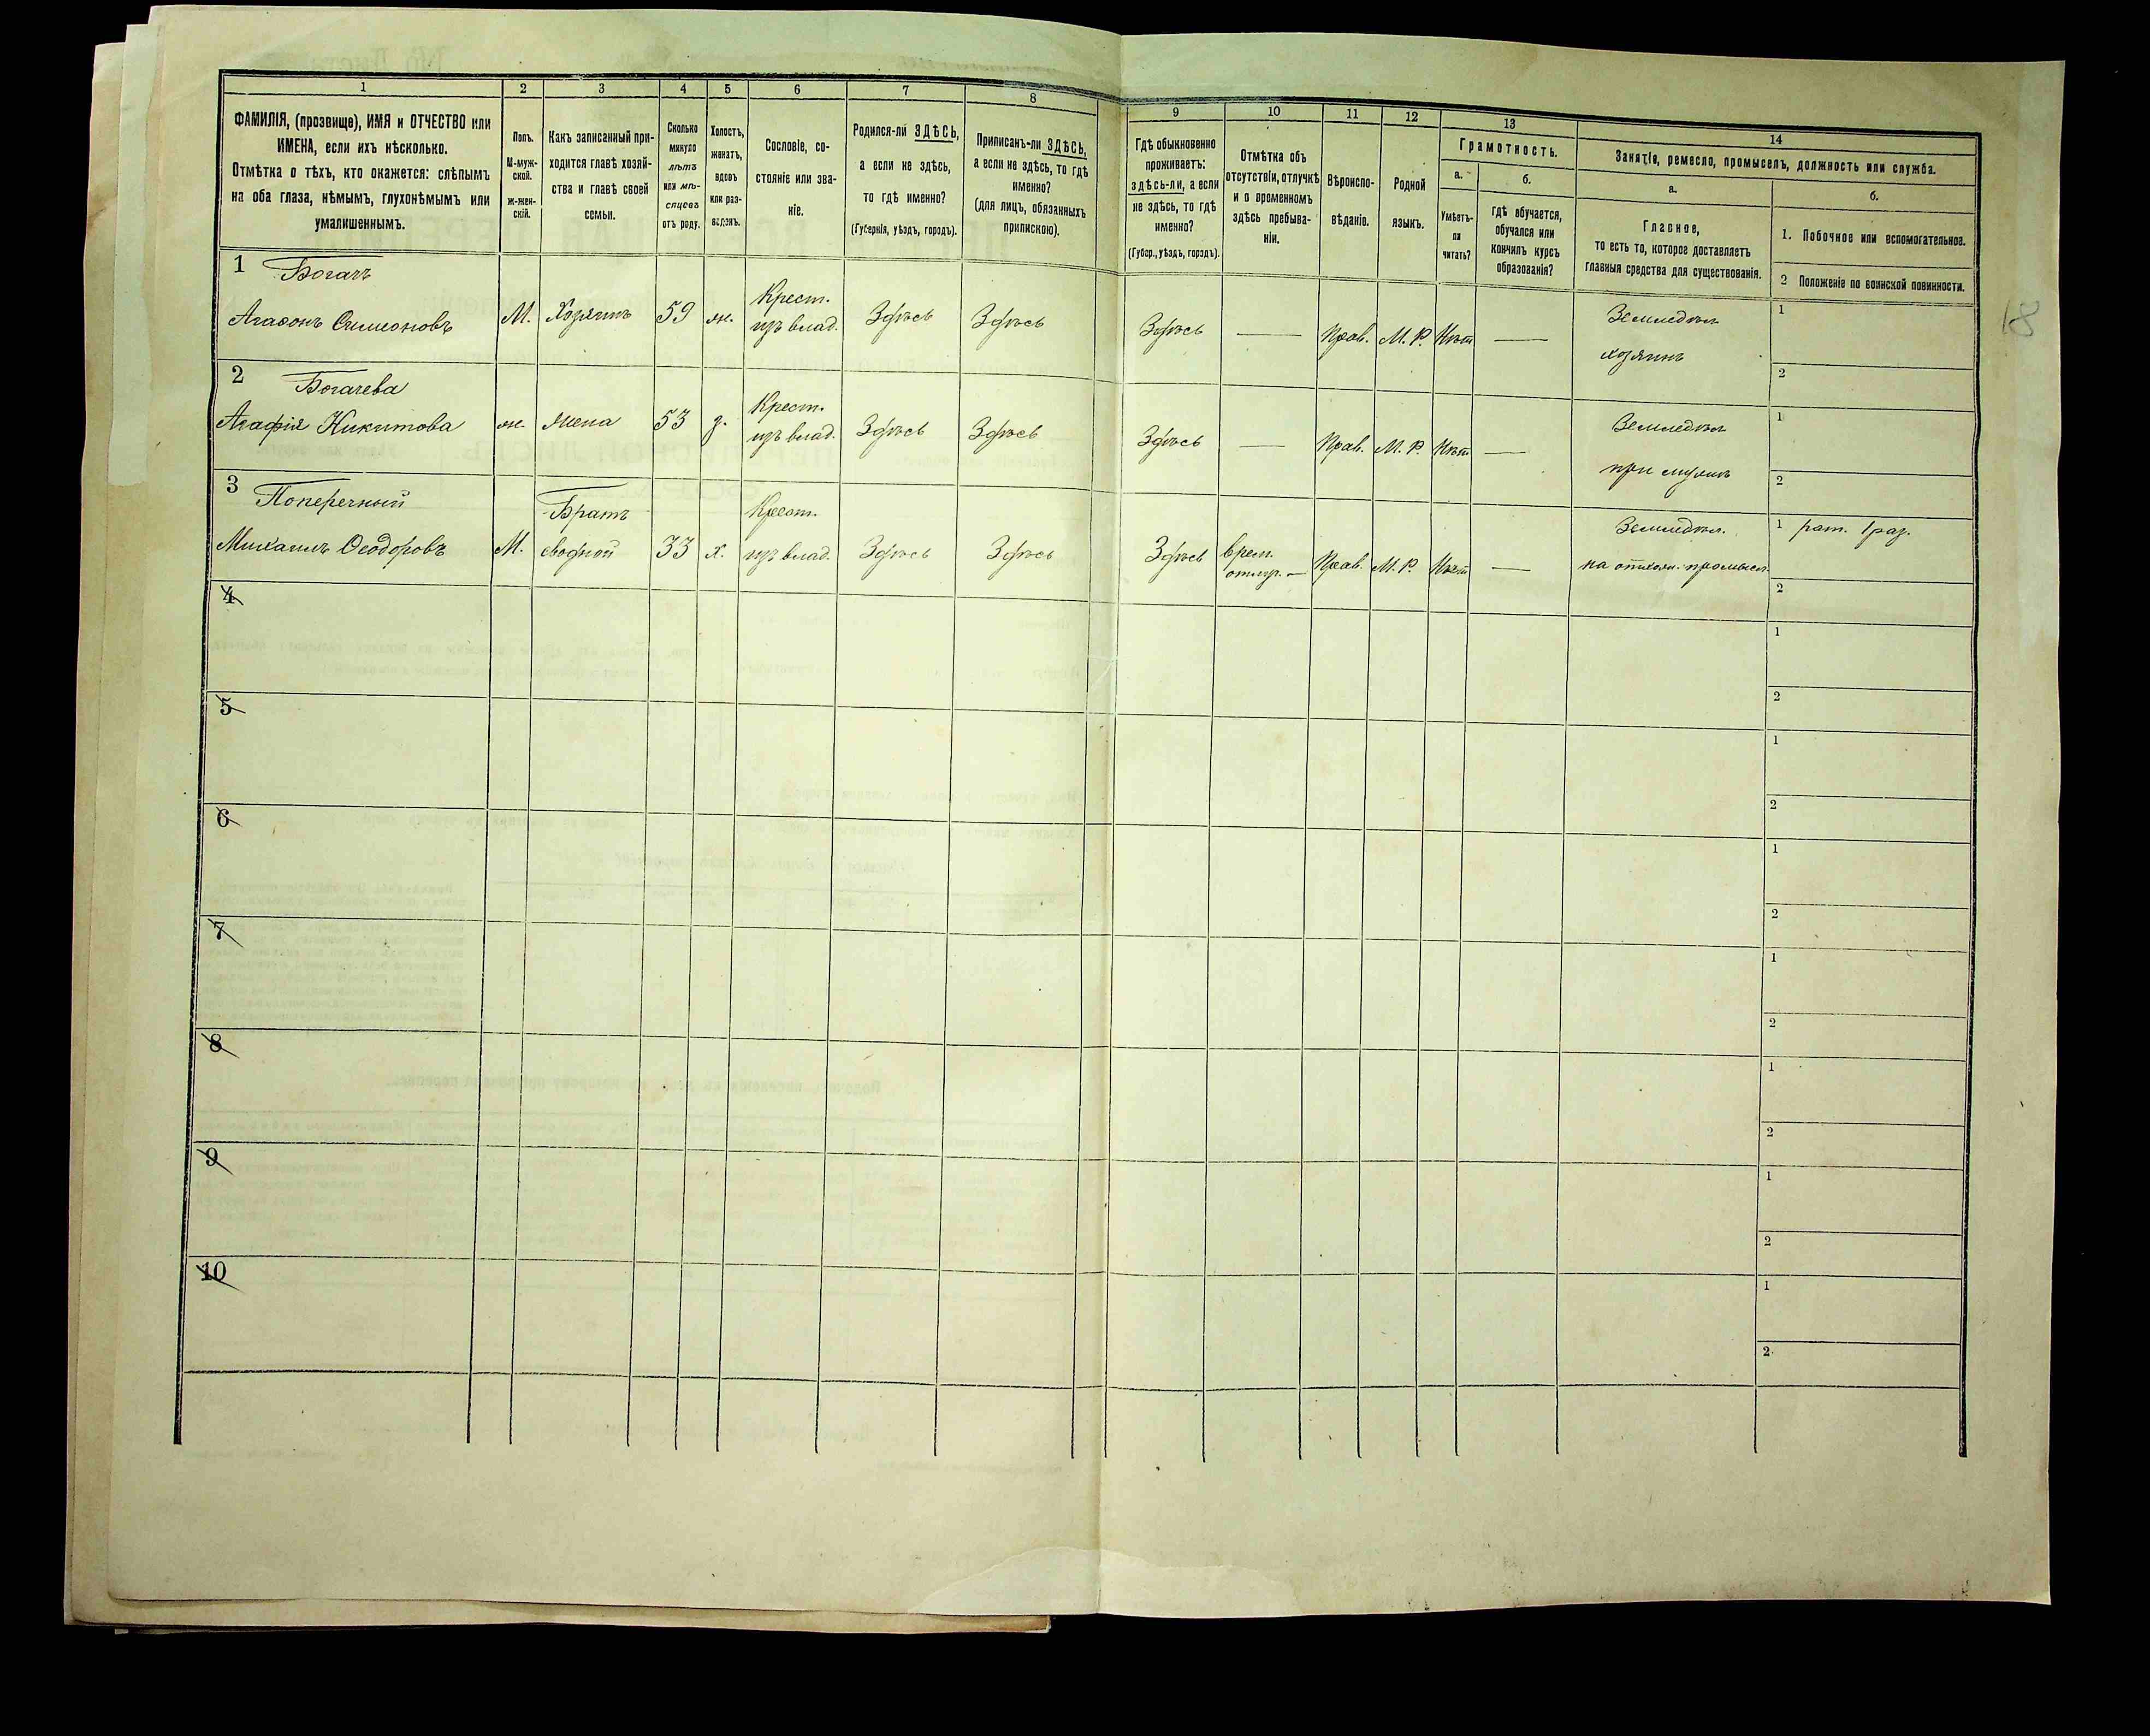 1
2
3
4
5
6
7
8
9
10
11
12
13
14
ФАМИЛІЯ, (прозвище), ИМЯ и ОТЧЕСТВО или
ИМЕНА, если ихъ нѣсколько.
Отмѣтка о тѣхъ, кто окажется: слѣпымъ
на оба глаза, нѣмымъ, глухонѣмымъ или
умалишеннымъ.
Полъ.
М-муж-
ской.
ж-жен-
скій.
Какъ записанный при-
ходится главѣ хозяй-
ства и главѣ своей
семьи.
Сколько
минуло
лѣтъ
или мѣ-
сяцевъ
отъ роду.
Холостъ,
женатъ,
вдовъ
или раз-
веденъ.
Сословіе, со-
стояніе или зва-
ніе.
Родился-ли ЗДѢСЬ,
а если не здѣсь,
то гдѣ именно?
(Губернія, уѣздъ, городъ).
Приписанъ-ли ЗДѢСЬ,
а если не здѣсь, то гдѣ
именно?
(для лицъ, обязанныхъ
припискою).
Гдѣ обыкновенно
проживаетъ:
здѣсь-ли, а если
не здѣсь, то гдѣ
именно?
(Губер., уѣздъ, городъ).
Отмѣтка объ
отсутствіи, отлучкѣ
и о временномъ
здѣсь пребыва-
ніи.
Вѣроиспо-
вѣданіе.
Родной
языкъ.
Грамотность.
а.
Умѣетъ-
ли
читать?
б.
гдѣ обучается,
обучался или
кончилъ курсъ
образованія?
Занятіе, ремесло, промыселъ, должность или служба.
а.
Главное,
то есть то, которое доставляетъ
главныя средства для существованія.
б.
1. Побочное или вспомогательное.
2 Положеніе по воинской повинности.
18
1 Богачъ
Агафонъ Симеоновъ
М.
Хозяинъ
59
ж.
Крест.
изъ влад.
Здѣсь
Здѣсь
Здѣсь
—
Прав.
М. Р.
Нѣт
—
Земледѣл
хозяинъ
1
2
2 Богачева
Агафія Никитова
ж.
жена
53
з.
Крест.
изъ влад.
Здѣсь
Здѣсь
Здѣсь
—
Прав.
М. Р.
Нѣт
—
Земледѣл
при мужѣ
1
2
3 Поперечный
Михаилъ Ѳеодоровъ
М.
Братъ
сводный
33
х.
Крест.
изъ влад.
Здѣсь
Здѣсь
Здѣсь
врем.
отлуч. —
Прав.
М. Р.
Нѣт
—
Земледѣл.
на отхож. промысл.
1 рат. 1 раз.
2
4
1
2
5
1
2
6
1
2
7
1
2
8
1
2
9
1
2
10
1
2